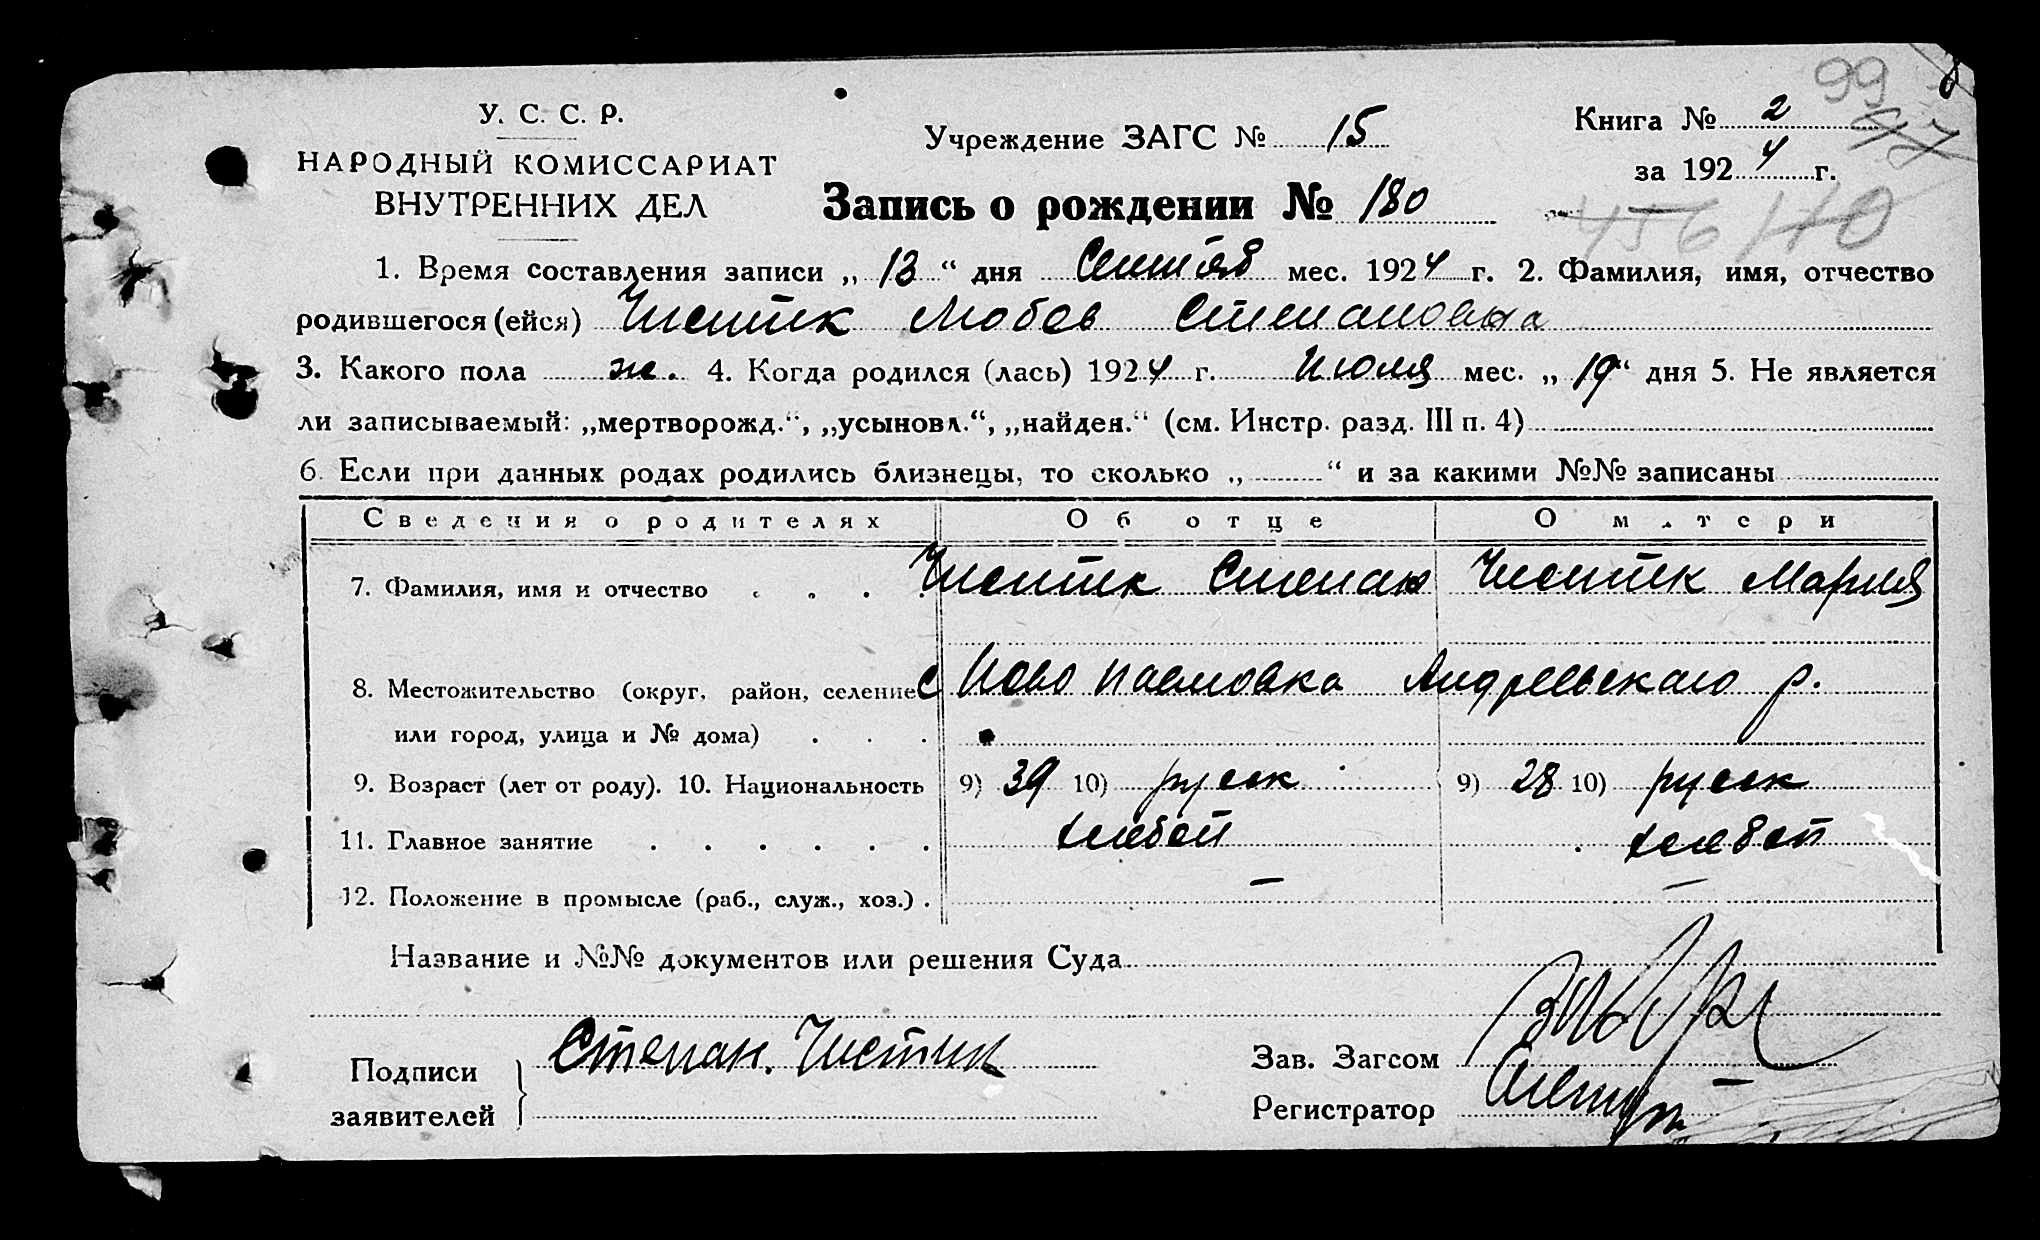 У. С. С. Р.
НАРОДНЫЙ КОМИССАРИАТ
ВНУТРЕННИХ ДЕЛ
Учреждение ЗАГС № 15
Книга № 2
99
за 1924 г.
Запись о рождении № 180
1. Время составления записи „ 13 “ дня Сентяб мес. 1924 г. 2. Фамилия, имя, отчество
родившегося (ейся) Чистик Любов Степановна
3. Какого пола ж. 4. Когда родился (лась) 1924 г. Июля мес. „ 19 “ дня 5. Не является
ли записываемый: „мертворожд.“, „усыновл.“, „найден.“ (см. Инстр. разд. III п. 4)
6. Если при данных родах родились близнецы, то сколько „ “ и за какими №№ записаны
Сведения о родителях Об отце О матери
7. Фамилия, имя и отчество Чистик Степан Чистик Мария
8. Местожительство (округ, район, селение С Ново Павловка Андреевскаго р.
или город, улица и № дома)
9. Возраст (лет от роду). 10. Национальность 9) 39 10) руск 9) 28 10) руск
11. Главное занятие хлебоп хлебоп
12. Положение в промысле (раб., служ., хоз.) — —
Название и №№ документов или решения Суда
Подписи заявителей Степан. Чистик
Зав. Загсом
Регистратор